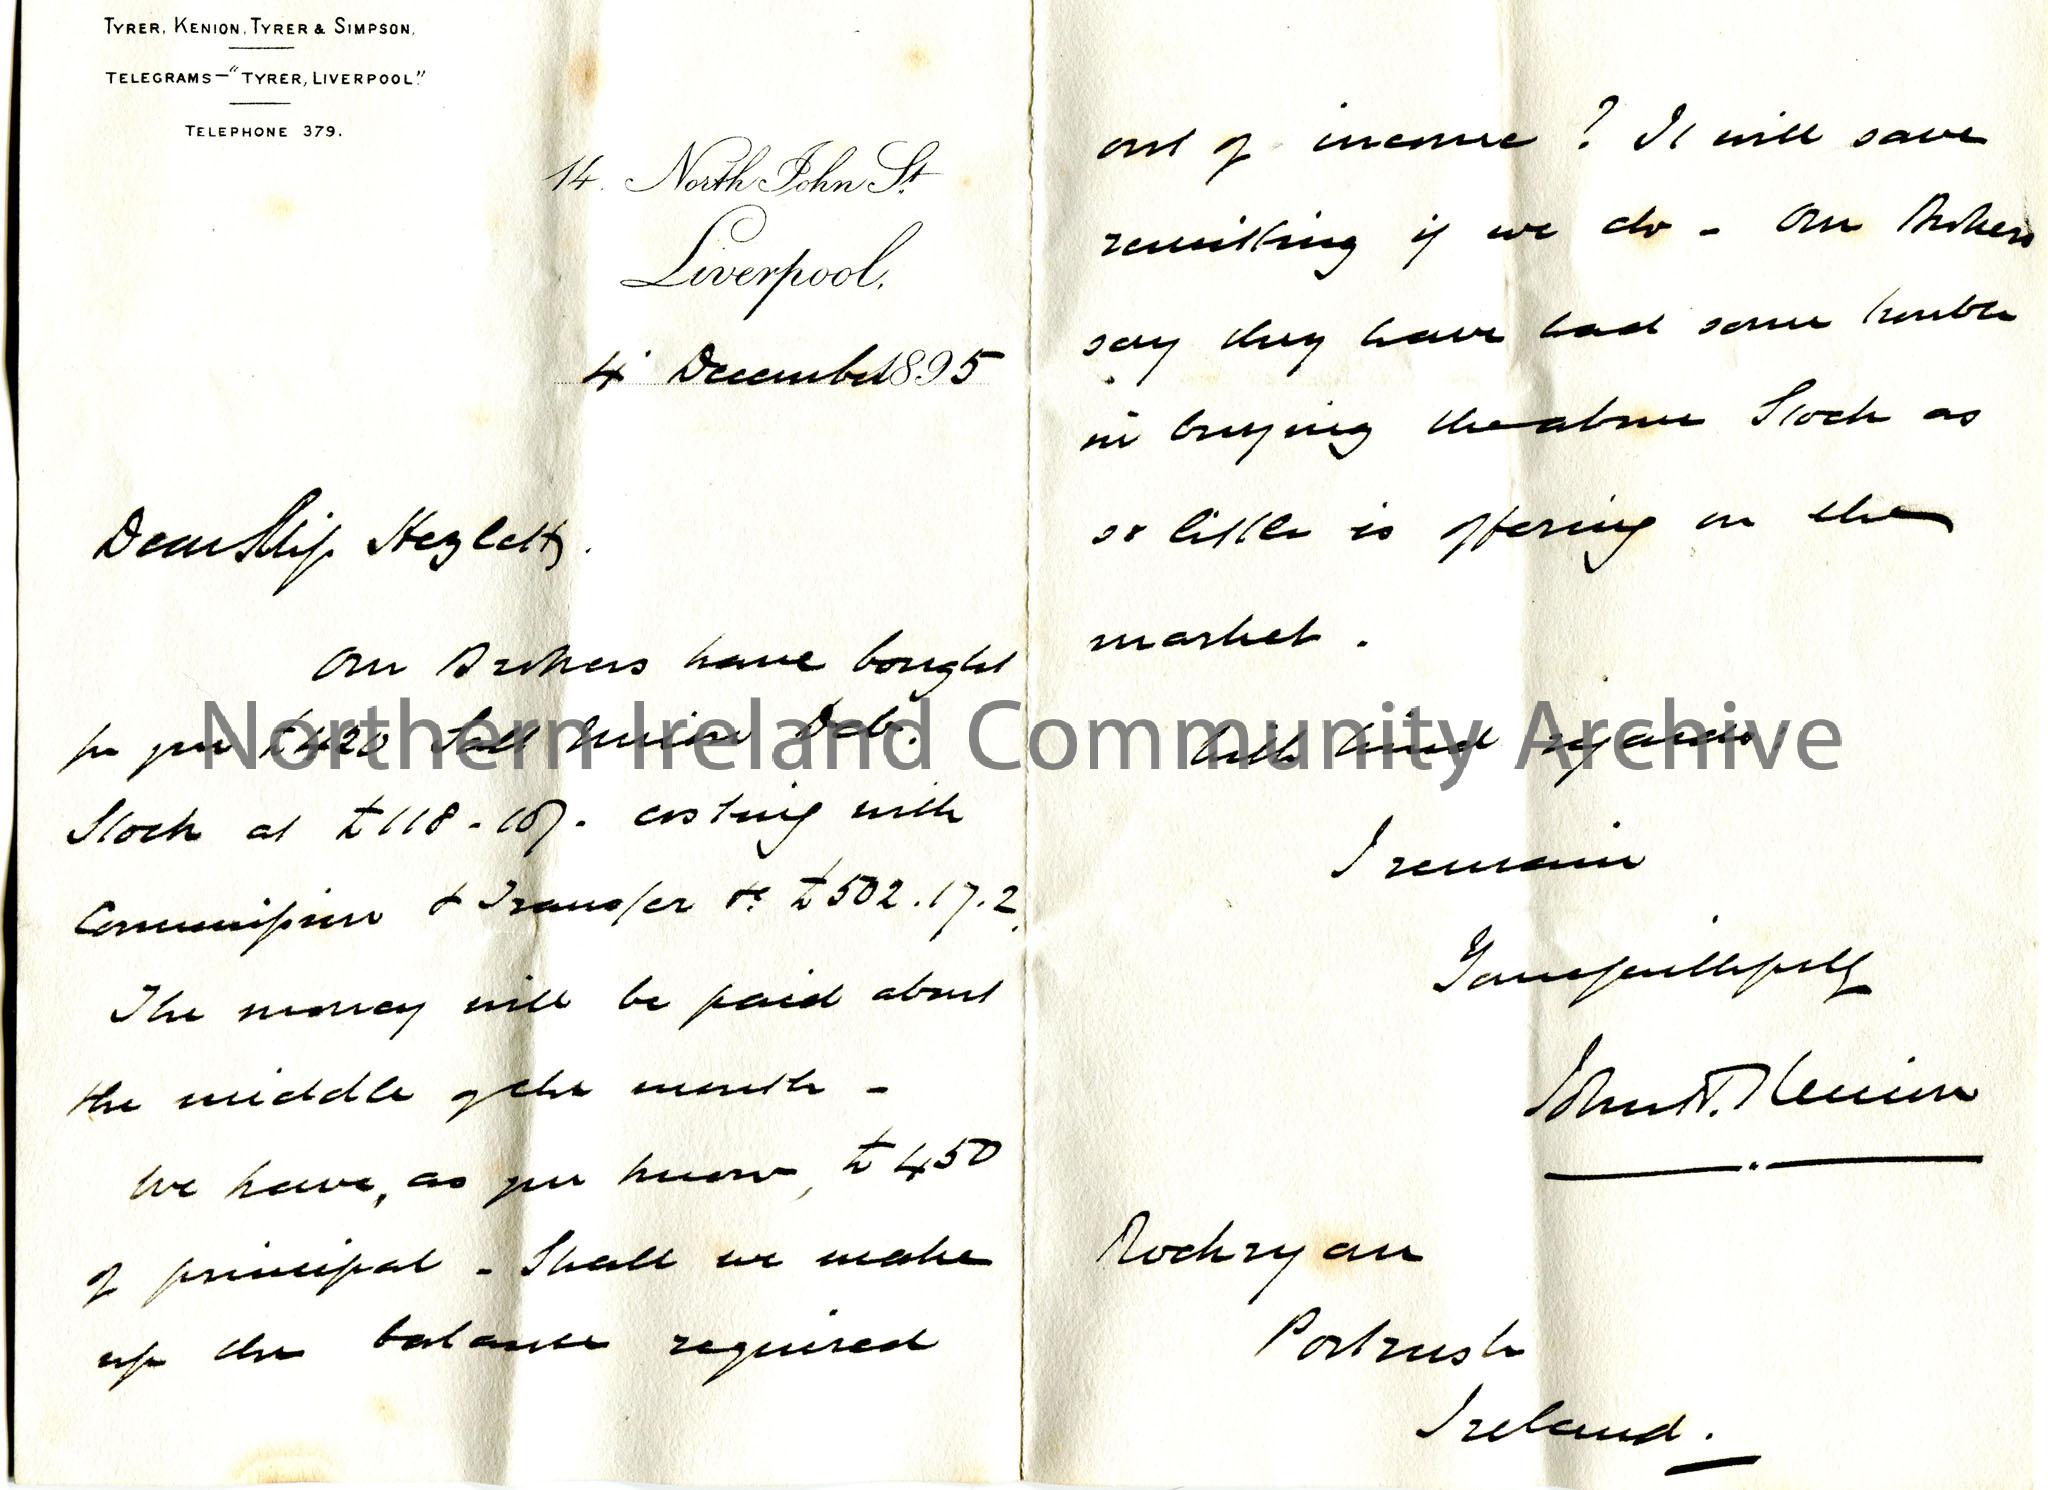 TYRER, KENION, TYRER & SIMPSON.
TELEGRAMS—"TYRER, LIVERPOOL."
TELEPHONE 379.
14. North John St.
Liverpool.
4 December 1895
Dear Hezlett.
Our Brokers have bought
for you £420 Salt Union Deb.
Stock at £118.10/- costing with
Commission & Transfer &c £502.17.2.
The money will be paid about
the middle of the month -
We have, as you know, £450
of principal - Shall we make
up the balance required
out of income? It will save
remitting if we do - Our Brokers
say they have had some trouble
in buying the above Stock as
so little is offering on the
market.
With kind regards,
I remain
Yours faithfully
John N. Kenion
Rockryan
Portrush
Ireland.
Northern Ireland Community Archive